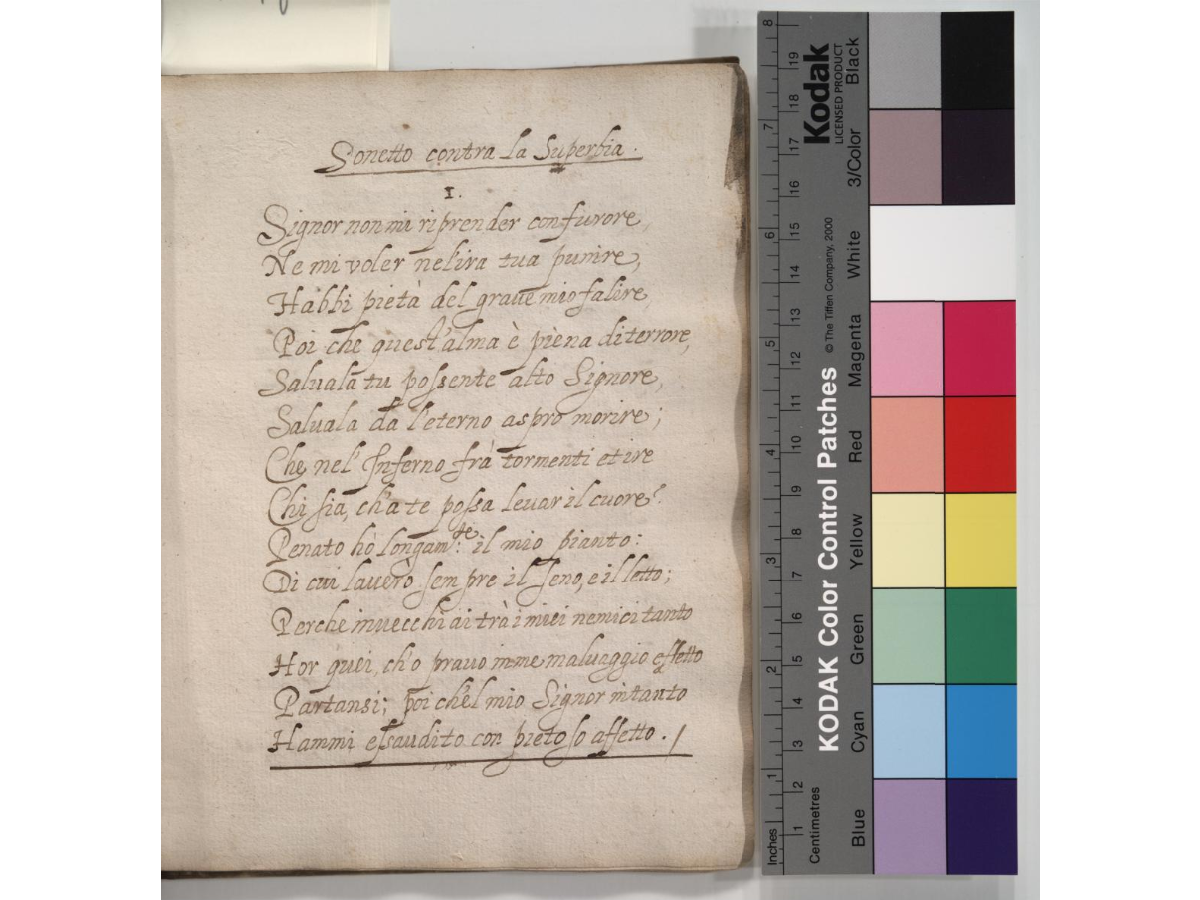 Sonetto contra la Superbia.
I.
Signor non mi riprender con furore,
Ne mi voler nel'ira tua punire,
Habbi pietà del graue mio falire,
Poi che quest'alma è pièna di terrore,
Saluala tu possente alto Signore,
Saluala da l'eterno aspro morire;
Che nel' Inferno frà tormenti et ire
Chi sia, ch'a te possa leuar il cuore?
Penato hò longam:te il mio pianto:
Di cui lauerò sempre il seno, e il letto;
Perche inuecchiai trà i miei nemici tanto
Hor quei, ch'o prauo in me maluaggio effetto
Partansi; poi ch'el mio Signor intanto
Hammi essaudito con pietoso affetto./
Kodak
LICENSED PRODUCT
KODAK Color Control Patches
© The Tiffen Company, 2000
Inches
1
2
3
4
5
6
7
8
Centimetres
1
2
3
4
5
6
7
8
9
10
11
12
13
14
15
16
17
18
19
Blue
Cyan
Green
Yellow
Red
Magenta
White
3/Color
Black